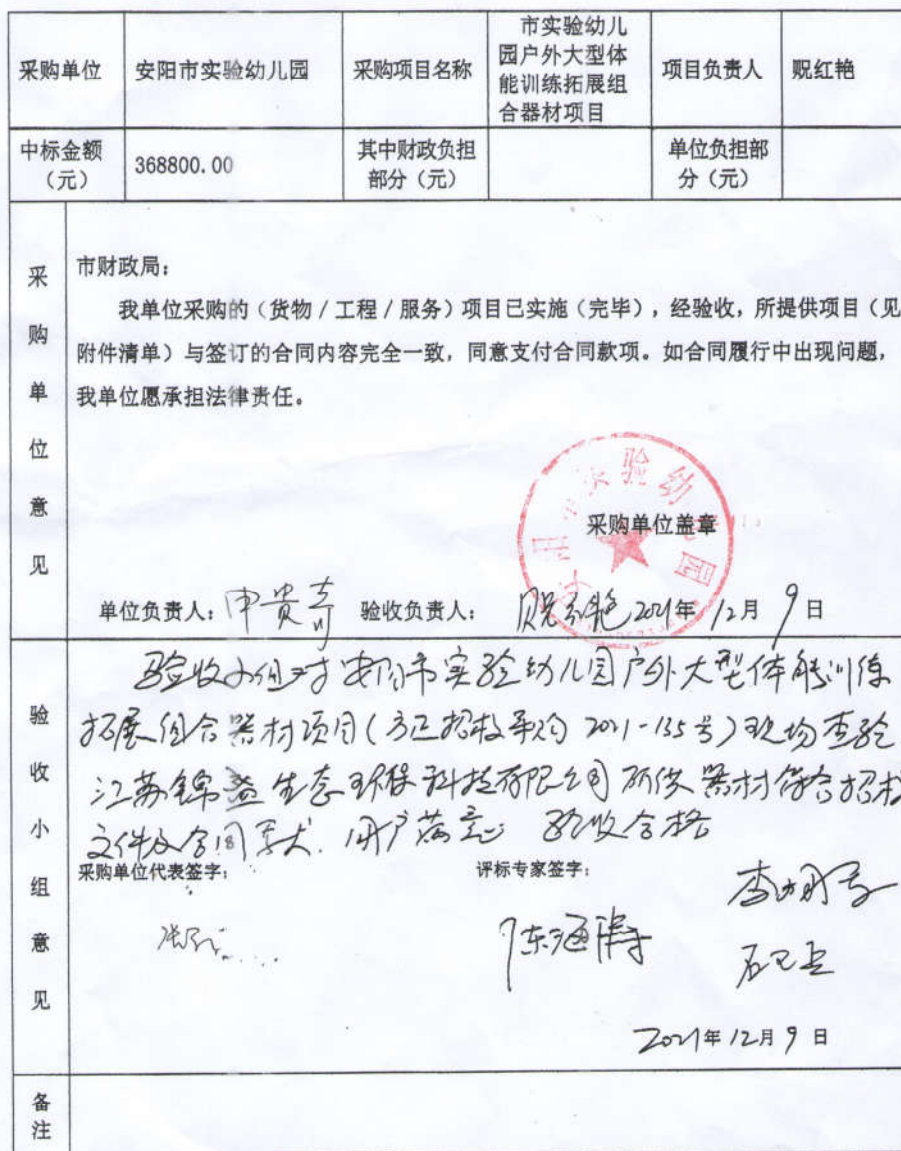 采购单位 安阳市实验幼儿园 采购项目名称 市实验幼儿园户外大型体能训练拓展组合器材项目 项目负责人 贶红艳
中标金额（元） 368800.00 其中财政负担部分（元） 单位负担部分（元）
采购单位意见
市财政局：
我单位采购的（货物／工程／服务）项目已实施（完毕），经验收，所提供项目（见
附件清单）与签订的合同内容完全一致，同意支付合同款项。如合同履行中出现问题，
我单位愿承担法律责任。
采购单位盖章
单位负责人： 验收负责人： 贶红艳 2021年 12月 9日
验收小组意见
验收小组对安阳市实验幼儿园户外大型体能训练
拓展组合器材项目（方正招标采购 2021-135号）现场查验
江苏锦益生态环保科技有限公司所供器材符合招标
文件及合同要求. 用户满意 验收合格
采购单位代表签字： 评标专家签字：
2021年12月9日
备注